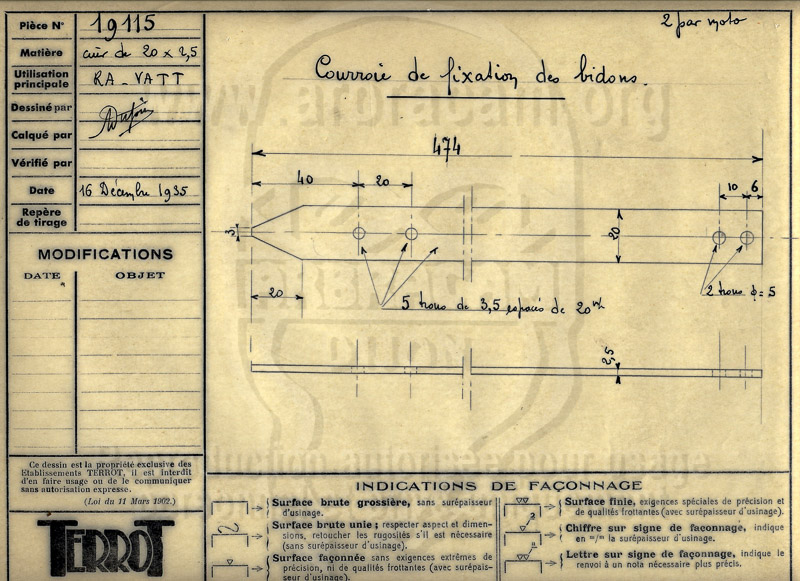 Pièce N° 19115
Matière cuir de 20 x 2,5
Utilisation principale RA-VATT
Dessiné par
Calqué par
Vérifié par
Date 16 Décembre 1935
Repère de tirage
MODIFICATIONS
DATE OBJET
Ce dessin est la propriété exclusive des
Etablissements TERROT, il est interdit
d'en faire usage ou de le communiquer
sans autorisation expresse.
(Loi du 11 Mars 1902.)
TERROT
2 par moto
Courroie de fixation des bidons.
474
40 20 10 6
3
20
20
5 trous de 3,5 espacés de 20 m/m
2 trous ϕ = 5
2,5
INDICATIONS DE FAÇONNAGE
Surface brute grossière, sans surépaisseur
d'usinage.
Surface brute unie ; respecter aspect et dimen-
sions, retoucher les rugosités s'il est nécessaire
(sans surépaisseur d'usinage).
Surface façonnée sans exigences extrêmes de
précision, ni de qualités frottantes (avec surépais-
seur d'usinage).
Surface finie, exigences spéciales de précision et
de qualités frottantes (avec surépaisseur d'usinage).
Chiffre sur signe de faconnage, indique
en =/= la surépaisseur d'usinage.
Lettre sur signe de façonnage, indique le
renvoi à un nota nécessaire plus précis.